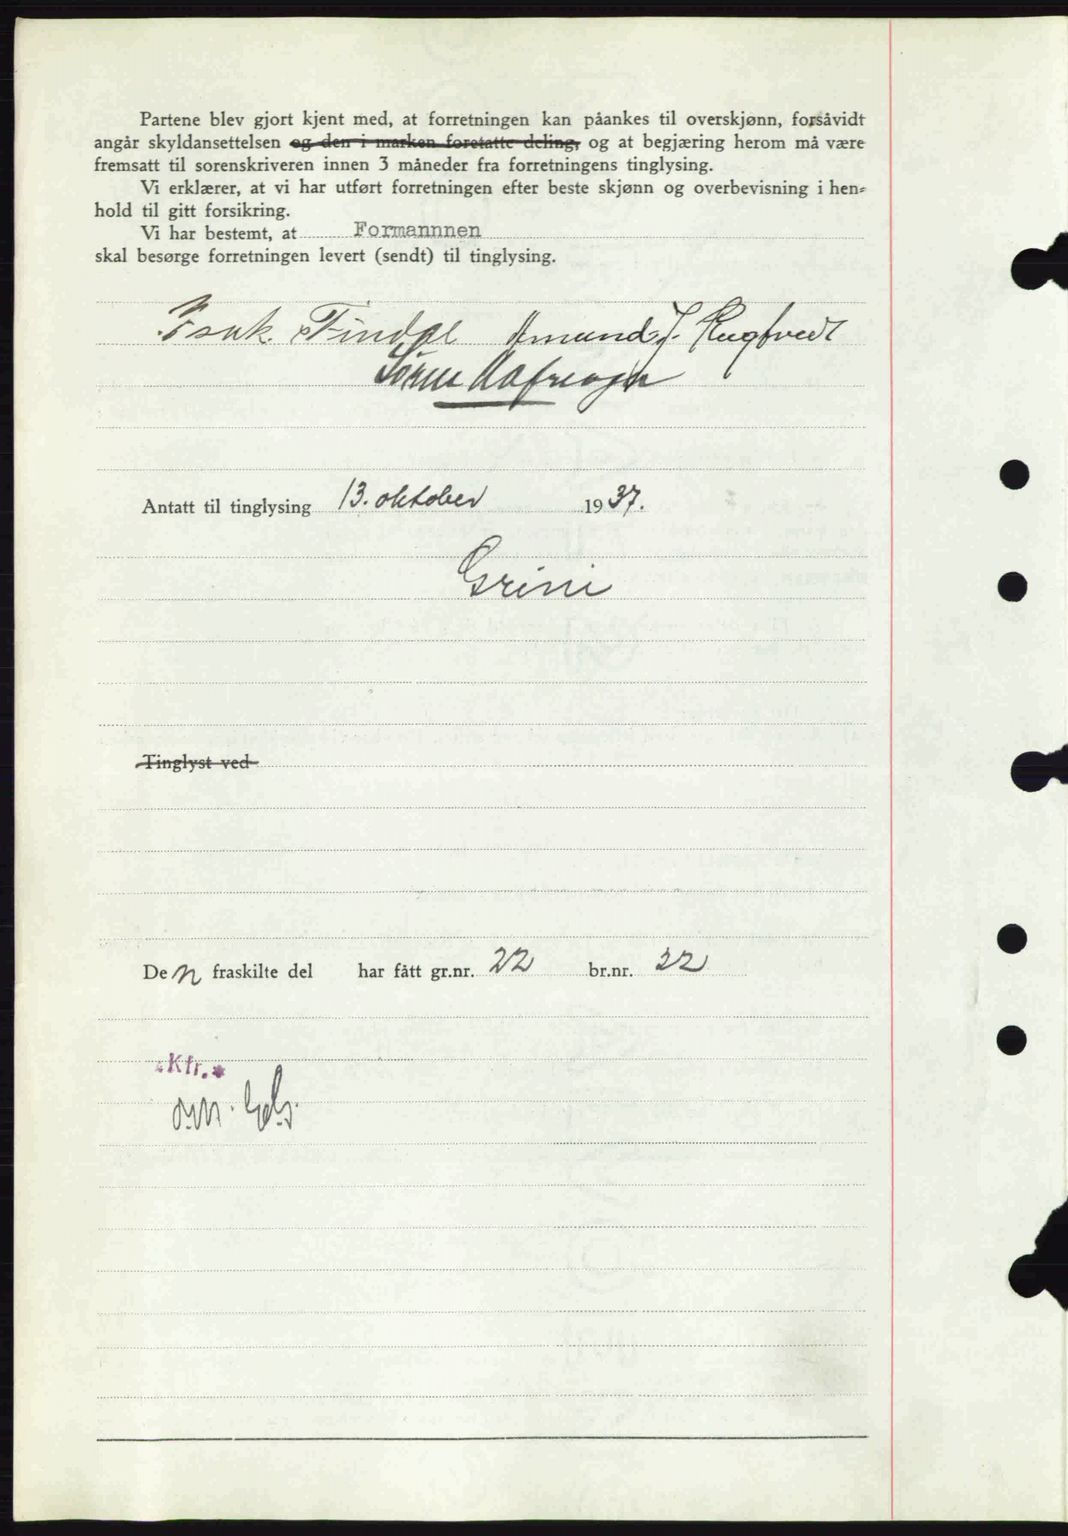 Partene blev gjort kjent med, at forretningen kan påankes til overskjønn, forsåvidt
angår skyldansettelsen og den i marken foretatte deling, og at begjæring herom må være
fremsatt til sorenskriveren innen 3 måneder fra forretningens tinglysing.
Vi erklærer, at vi har utført forretningen efter beste skjønn og overbevisning i hen-
hold til gitt forsikring.
Vi har bestemt, at Formannnen
skal besørge forretningen levert (sendt) til tinglysing.
Isak Tindal Amund J.
Antatt til tinglysing 13. oktober 1937.
Grini
Tinglyst ved
Den fraskilte del har fått gr.nr. 22 br.nr. 32
Ktr.